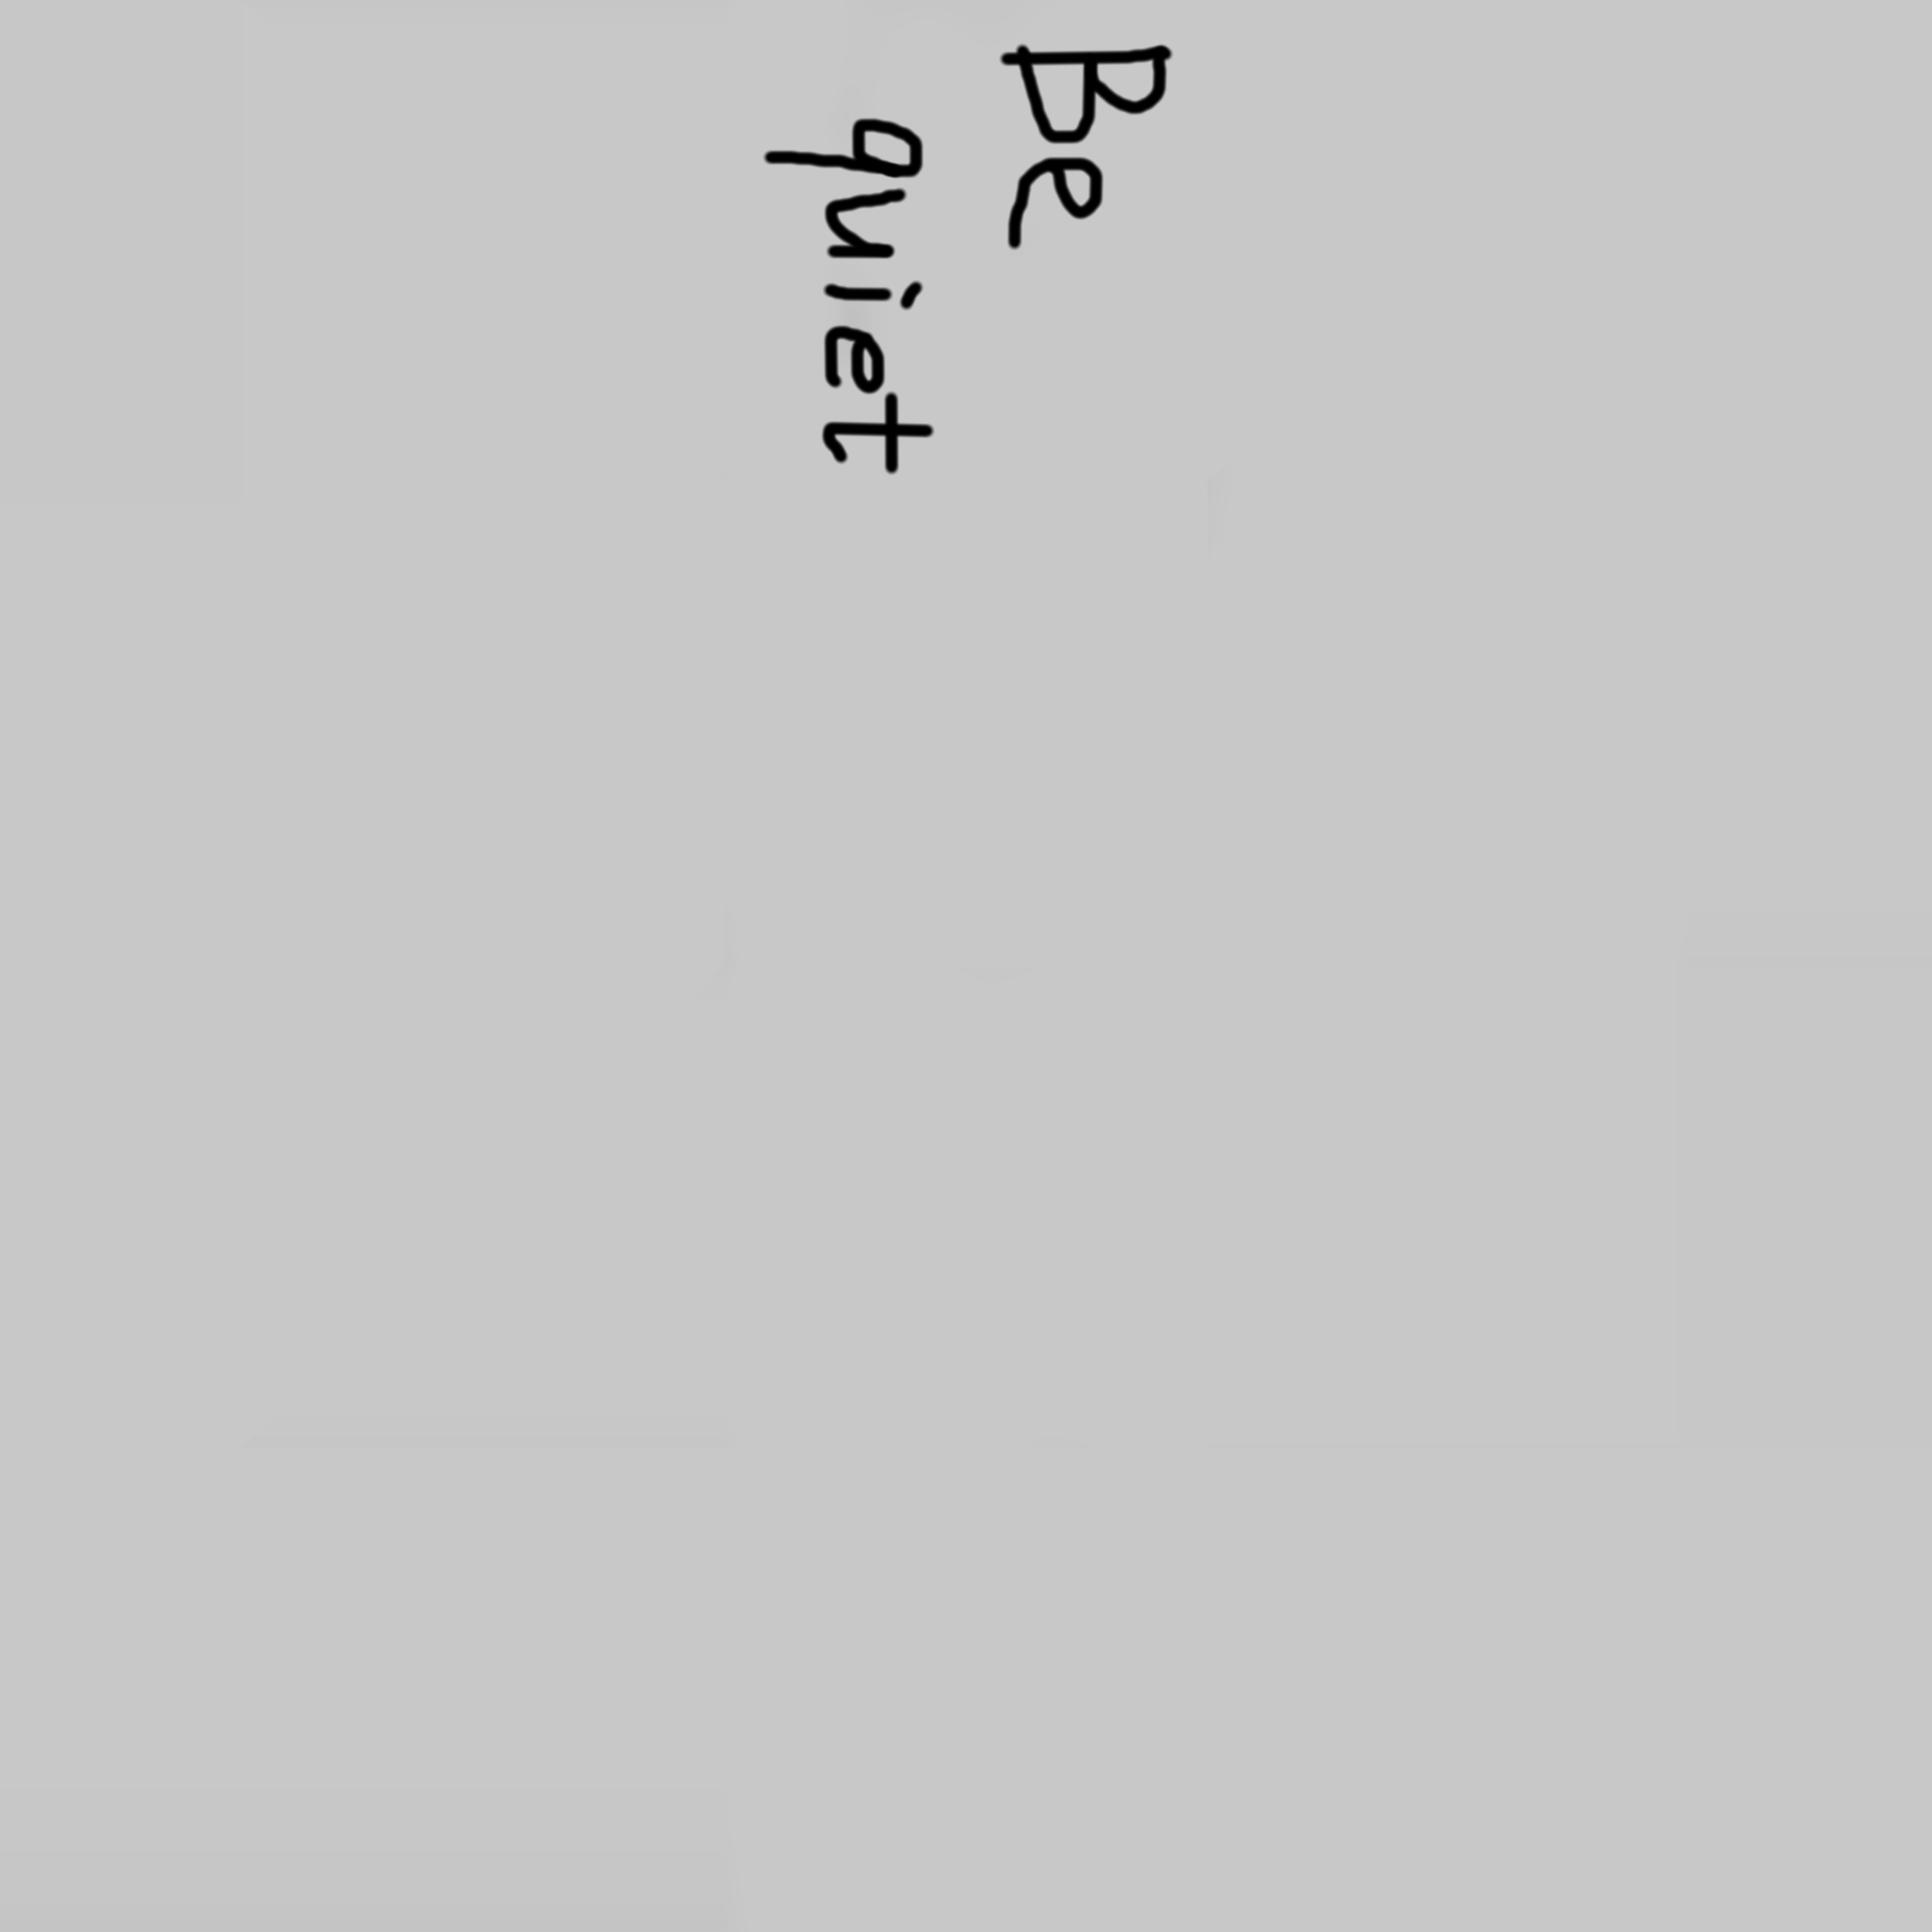 Be
quiet